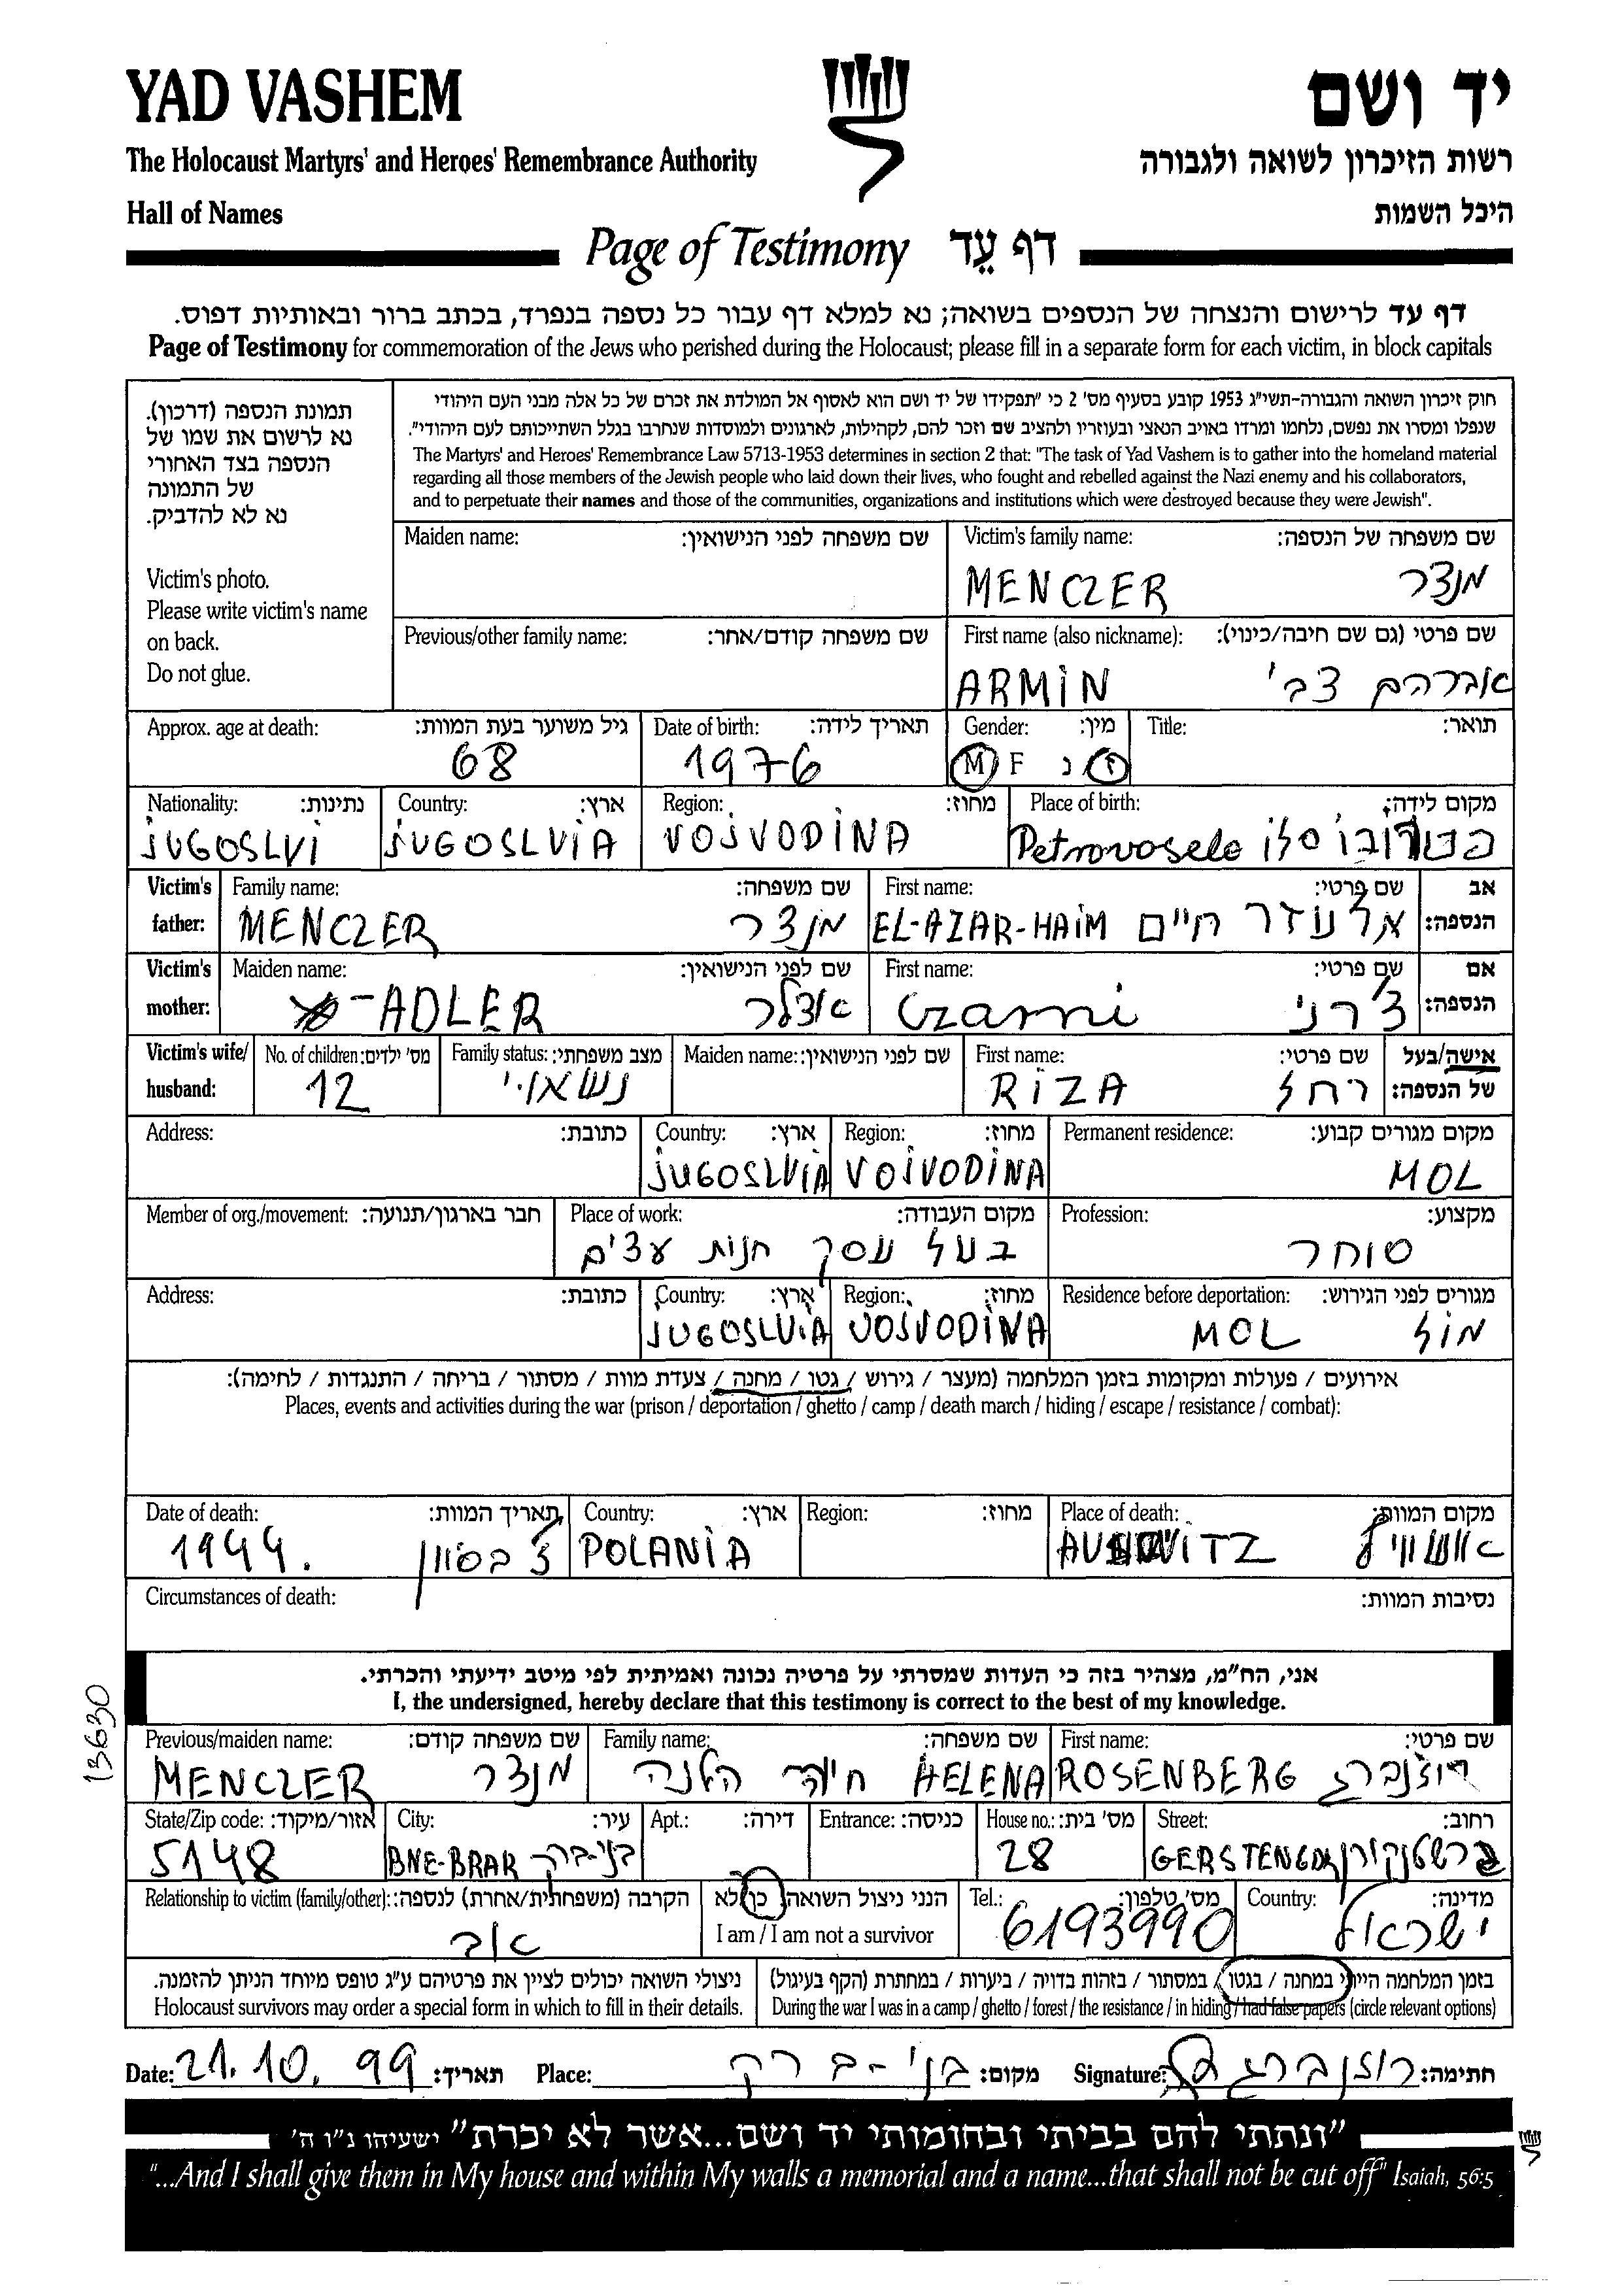 YAD VASHEM
יד ושם
The Holocaust Martyrs' and Heroes' Remembrance Authority
רשות הזיכרון לשואה ולגבורה
Hall of Names
היכל השמות
Page of Testimony דף עֵד
דף עד לרישום והנצחה של הנספים בשואה; נא למלא דף עבור כל נספה בנפרד, בכתב ברור ובאותיות דפוס.
Page of Testimony for commemoration of the Jews who perished during the Holocaust; please fill in a separate form for each victim, in block capitals
תמונת הנספה (דרכון).
נא לרשום את שמו של
הנספה בצד האחורי
של התמונה
נא לא להדביק.
Victim's photo.
Please write victim's name
on back.
Do not glue.
חוק זיכרון השואה והגבורה-תשי"ג 1953 קובע בסעיף מס' 2 כי "תפקידו של יד ושם הוא לאסוף אל המולדת את זכרם של כל אלה מבני העם היהודי
שנפלו ומסרו את נפשם, נלחמו ומרדו באויב הנאצי ובעוזריו ולהציב שם וזכר להם, לקהילות, לארגונים ולמוסדות שנחרבו בגלל השתייכותם לעם היהודי".
The Martyrs' and Heroes' Remembrance Law 5713-1953 determines in section 2 that: "The task of Yad Vashem is to gather into the homeland material
regarding all those members of the Jewish people who laid down their lives, who fought and rebelled against the Nazi enemy and his collaborators,
and to perpetuate their names and those of the communities, organizations and institutions which were destroyed because they were Jewish".
Maiden name: שם משפחה לפני הנישואין: Victim's family name: שם משפחה של הנספה:
MENCZER מנצר
Previous/other family name: שם משפחה קודם/אחר: First name (also nickname): שם פרטי (גם שם חיבה/כינוי):
ARMIN אברהם צבי
Approx. age at death: גיל משוער בעת המוות: Date of birth: תאריך לידה: Gender: מין: Title: תואר:
68 1976 M F נ ז
Nationality: נתינות: Country: ארץ: Region: מחוז: Place of birth: מקום לידה:
JUGOSLVI JUGOSLVIA VOJVODINA Petrovoselo פטרובו סלו
Victim's father: Family name: שם משפחה: First name: שם פרטי: אב הנספה:
MENCZER מנצר EL-AZAR-HAIM אלעזר חיים
Victim's mother: Maiden name: שם לפני הנישואין: First name: שם פרטי: אם הנספה:
-ADLER אדלר Czarni צ'רני
Victim's wife/ husband: No. of children: מס' ילדים: Family status: מצב משפחתי: Maiden name: שם לפני הנישואין: First name: שם פרטי: אישה/בעל של הנספה:
12 נשאוי RIZA רחל
Address: כתובת: Country: ארץ: Region: מחוז: Permanent residence: מקום מגורים קבוע:
JUGOSLVIA VOJVODINA MOL
Member of org./movement: חבר בארגון/תנועה: Place of work: מקום העבודה: Profession: מקצוע:
בעל עסק חנות עצים סוחר
Address: כתובת: Country: ארץ: Region: מחוז: Residence before deportation: מגורים לפני הגירוש:
JUGOSLVIA VOJVODINA MOL מול
אירועים / פעולות ומקומות בזמן המלחמה (מעצר / גירוש / גטו / מחנה / צעדת מוות / מסתור / בריחה / התנגדות / לחימה):
Places, events and activities during the war (prison / deportation / ghetto / camp / death march / hiding / escape / resistance / combat):
Date of death: תאריך המוות: Country: ארץ: Region: מחוז: Place of death: מקום המוות:
1944. ב סיוון POLANIA
Circumstances of death: נסיבות המוות:
אני, הח"מ, מצהיר בזה כי העדות שמסרתי על פרטיה נכונה ואמיתית לפי מיטב ידיעתי והכרתי.
I, the undersigned, hereby declare that this testimony is correct to the best of my knowledge.
13630
Previous/maiden name: שם משפחה קודם: Family name: שם משפחה: First name: שם פרטי:
MENCZER מנצר חיה הלנה HELENA ROSENBERG רוזנברג
State/Zip code: אזור/מיקוד: City: עיר: Apt.: דירה: Entrance: כניסה: House no.: מס' בית: Street: רחוב:
5148 BNE-BRAR בני-ברק 28 גרשטנקורן
Relationship to victim (family/other): הקרבה (משפחתית/אחרת) לנספה: הנני ניצול השואה: כן/לא Tel.: מס' טלפון: Country: מדינה:
אב I am / I am not a survivor 6193990 ישראל
ניצולי השואה יכולים לציין את פרטיהם ע"ג טופס מיוחד הניתן להזמנה. בזמן המלחמה הייתי במחנה / בגטו / במסתור / בזהות בדויה / ביערות / במחתרת (הקף בעיגול)
Holocaust survivors may order a special form in which to fill in their details. During the war I was in a camp / ghetto / forest / the resistance / in hiding / had false papers (circle relevant options)
Date: 21.10.99 תאריך: Place: בני-ברק מקום: Signature: רוזנברג חתימה:
"ונתתי להם בביתי ובחומותי יד ושם...אשר לא יכרת" ישעיהו נ"ו ה'
"...And I shall give them in My house and within My walls a memorial and a name...that shall not be cut off" Isaiah, 56:5